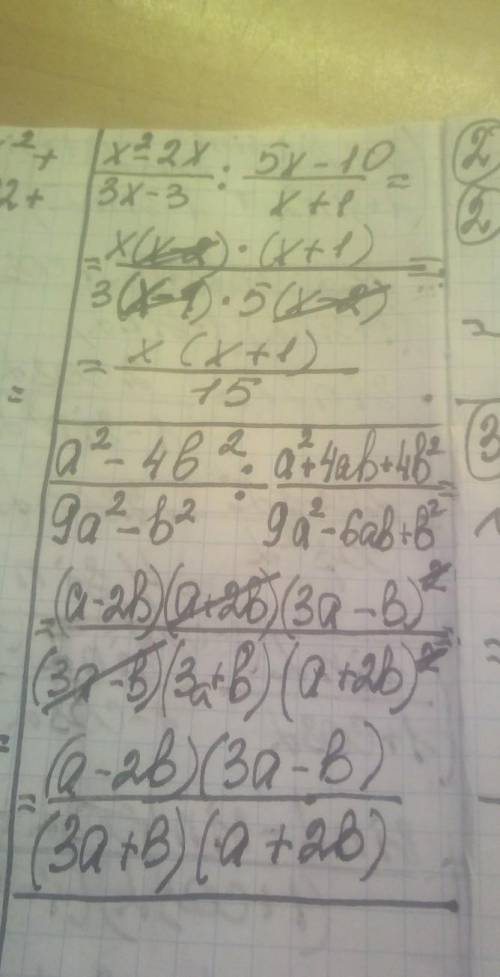 ² +
2 +
(x² - 2x)/(3x - 3) : (5x - 10)/(x + 1) =
= (x(x - 2) · (x + 1))/(3(x - 1) · 5(x - 2)) =
= (x (x + 1))/15
=
(a² - 4b²)/(9a² - b²) : (a² + 4ab + 4b²)/(9a² - 6ab + b²) =
= ((a - 2b)(a + 2b)(3a - b)²)/((3a - b)(3a + b)(a + 2b)²) =
= ((a - 2b)(3a - b))/((3a + b)(a + 2b))
=
2
2
3
=